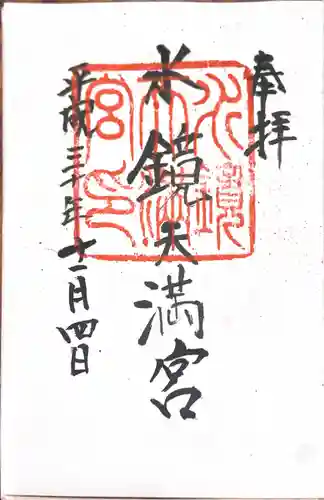 奉拝
水鏡天満宮
平成三十年
十一月四日